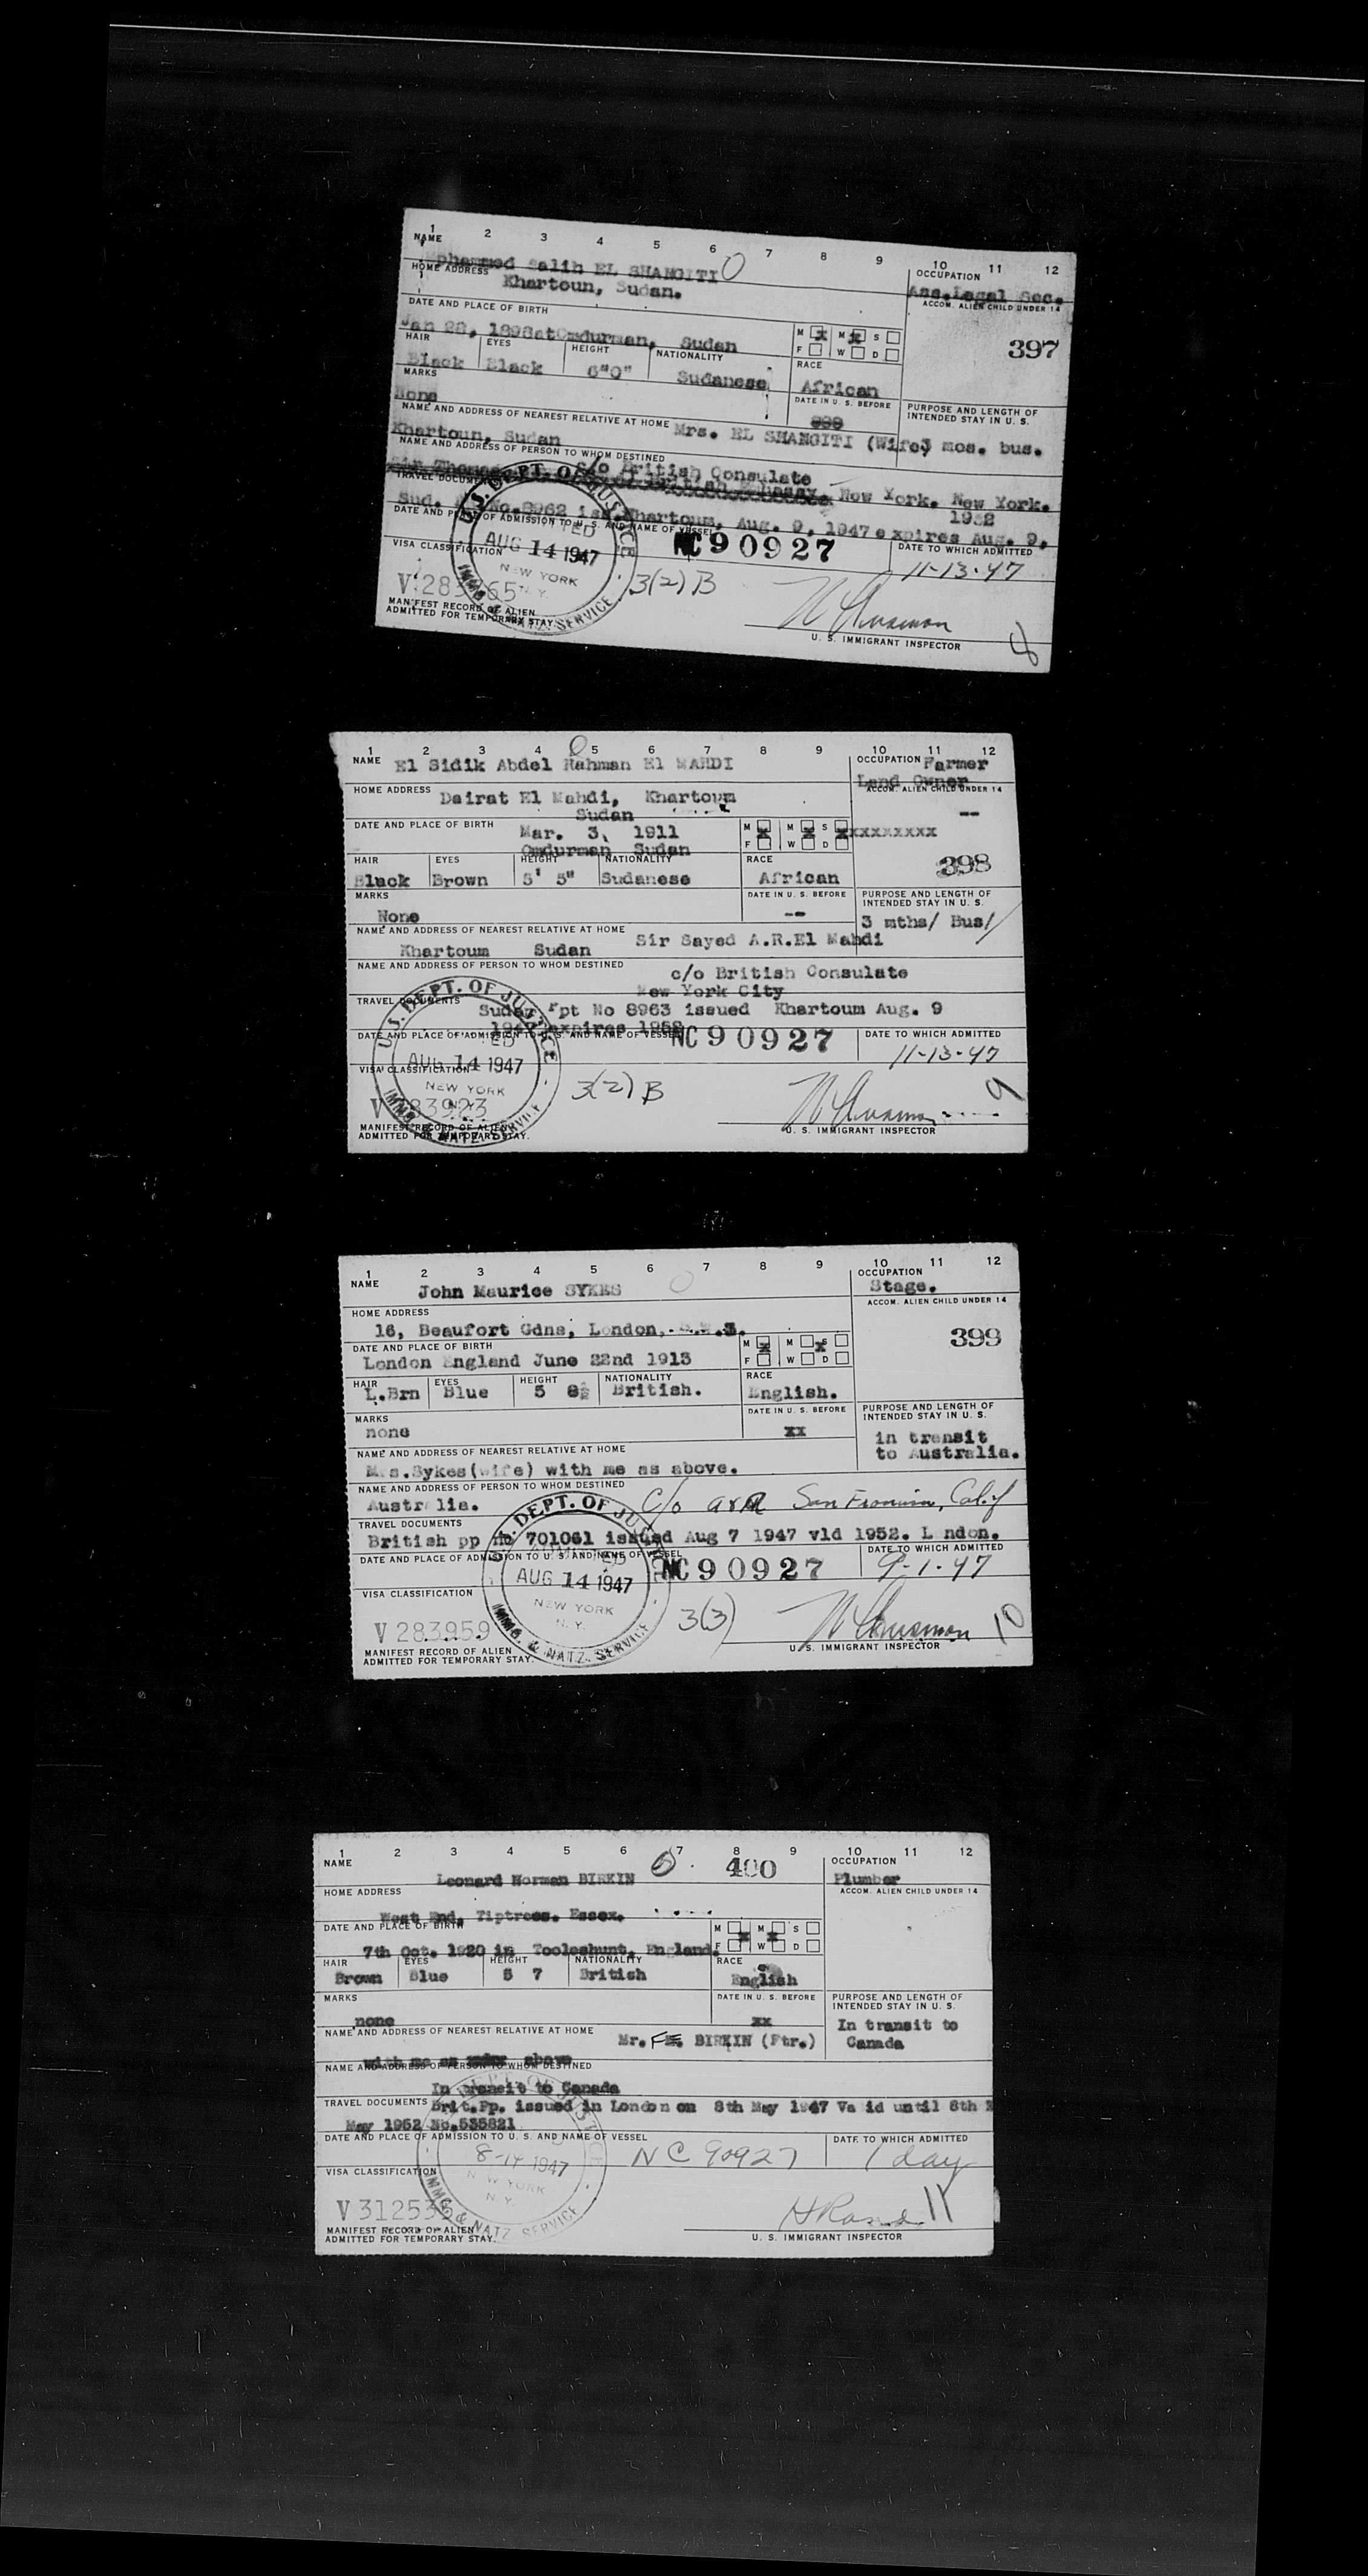 1 2 3 4 5 6 7 8 9 10 11 12
NAME OCCUPATION
Mohammed Salih EL SHANGITI O Ass.Legal Sec.
HOME ADDRESS ACCOM. ALIEN CHILD UNDER 14
Khartoun, Sudan.
DATE AND PLACE OF BIRTH M M S
397
Jan 28, 1898at Omdurman, Sudan F W D
HAIR EYES HEIGHT NATIONALITY RACE
Black Black 6"0" Sudanese African
MARKS DATE IN U. S. BEFORE PURPOSE AND LENGTH OF
INTENDED STAY IN U. S.
None
NAME AND ADDRESS OF NEAREST RELATIVE AT HOME Mrs. EL SHANGITI (Wife) 3 mos. bus.
Khartoun, Sudan
NAME AND ADDRESS OF PERSON TO WHOM DESTINED
c/o British Consulate
British Embassy New York. New York.
TRAVEL DOCUMENTS 1952
Sud. No.8962 iss.Khartoum, Aug. 9, 1947 expires Aug. 9,
DATE AND PLACE OF ADMISSION TO U. S. AND NAME OF VESSEL DATE TO WHICH ADMITTED
NC 90927 11-13-47
VISA CLASSIFICATION
U.S. DEPT. OF JUSTICE
ADMITTED
AUG 14 1947
NEW YORK
N.Y.
IMMG. & NATZ. SERVICE
3(2)B
MANIFEST RECORD OF ALIEN
ADMITTED FOR TEMPORARY STAY.
U. S. IMMIGRANT INSPECTOR 8
1 2 3 4 5 6 7 8 9 10 11 12
NAME El Sidik Abdel Rahman El MAHDI OCCUPATION Farmer
Land Owner
HOME ADDRESS Dairat El Mahdi, Khartoum ACCOM. ALIEN CHILD UNDER 14
Sudan --
DATE AND PLACE OF BIRTH Mar. 3, 1911 M M S xxxxxxxxx
Omdurman Sudan F W D
HAIR EYES HEIGHT NATIONALITY RACE 398
Black Brown 5' 5" Sudanese African
MARKS DATE IN U. S. BEFORE PURPOSE AND LENGTH OF
INTENDED STAY IN U. S.
None -- 3 mths/ Bus/
NAME AND ADDRESS OF NEAREST RELATIVE AT HOME Sir Sayed A.R.El Mahdi
Khartoum Sudan
NAME AND ADDRESS OF PERSON TO WHOM DESTINED c/o British Consulate
New York City
TRAVEL DOCUMENTS Sudan Ppt No 8963 issued Khartoum Aug. 9
1947 expires 1952
DATE AND PLACE OF ADMISSION TO U. S. AND NAME OF VESSEL NC 90927 DATE TO WHICH ADMITTED
11-13-47
VISA CLASSIFICATION
U.S. DEPT. OF JUSTICE
AUG 14 1947
NEW YORK
N.Y.
IMMG. & NATZ. SERVICE
3(2)B
MANIFEST RECORD OF ALIEN
ADMITTED FOR TEMPORARY STAY.
U. S. IMMIGRANT INSPECTOR 9
1 2 3 4 5 6 7 8 9 10 11 12
NAME John Maurice SYKES OCCUPATION Stage.
HOME ADDRESS ACCOM. ALIEN CHILD UNDER 14
16, Beaufort Gdns, London, S.W.3.
399
DATE AND PLACE OF BIRTH M M S
London England June 22nd 1913 F W D
HAIR EYES HEIGHT NATIONALITY RACE
L.Brn Blue 5 8½ British. English.
MARKS DATE IN U. S. BEFORE PURPOSE AND LENGTH OF
INTENDED STAY IN U. S.
none xx in transit
to Australia.
NAME AND ADDRESS OF NEAREST RELATIVE AT HOME
Mrs.Sykes(wife) with me as above.
NAME AND ADDRESS OF PERSON TO WHOM DESTINED
Australia. c/o San Francisco, Calif
TRAVEL DOCUMENTS
British pp no 701061 issued Aug 7 1947 vld 1952. L ndon.
DATE AND PLACE OF ADMISSION TO U. S. AND NAME OF VESSEL NC 90927 DATE TO WHICH ADMITTED
9-1-47
VISA CLASSIFICATION
U.S. DEPT. OF JUSTICE
ADMITTED
AUG 14 1947
NEW YORK
N.Y.
IMMG. & NATZ. SERVICE
V 283959 3(3)
MANIFEST RECORD OF ALIEN
ADMITTED FOR TEMPORARY STAY.
U. S. IMMIGRANT INSPECTOR 10
1 2 3 4 5 6 7 8 9 10 11 12
NAME Leonard Norman BIRKIN 400 OCCUPATION
Plumber
HOME ADDRESS ACCOM. ALIEN CHILD UNDER 14
West End, Tiptree. Essex.
DATE AND PLACE OF BIRTH M M S
7th Oct. 1920 in Tooleshunt, England. F W D
HAIR EYES HEIGHT NATIONALITY RACE
Brown Blue 5 7 British English
MARKS DATE IN U. S. BEFORE PURPOSE AND LENGTH OF
INTENDED STAY IN U. S.
none xx In transit to
Canada
NAME AND ADDRESS OF NEAREST RELATIVE AT HOME Mr. BIRKIN (Ftr.)
with me as above
NAME AND ADDRESS OF PERSON TO WHOM DESTINED
In transit to Canada
TRAVEL DOCUMENTS Brit.Pp. issued in London on 8th May 1947 Va id until 8th
May 1952 No.535821
DATE AND PLACE OF ADMISSION TO U. S. AND NAME OF VESSEL DATE TO WHICH ADMITTED
8-14 1947 NC 90927 1 day
VISA CLASSIFICATION
NEW YORK
N.Y.
IMMG. & NATZ. SERVICE
MANIFEST RECORD OF ALIEN
ADMITTED FOR TEMPORARY STAY.
U. S. IMMIGRANT INSPECTOR 11